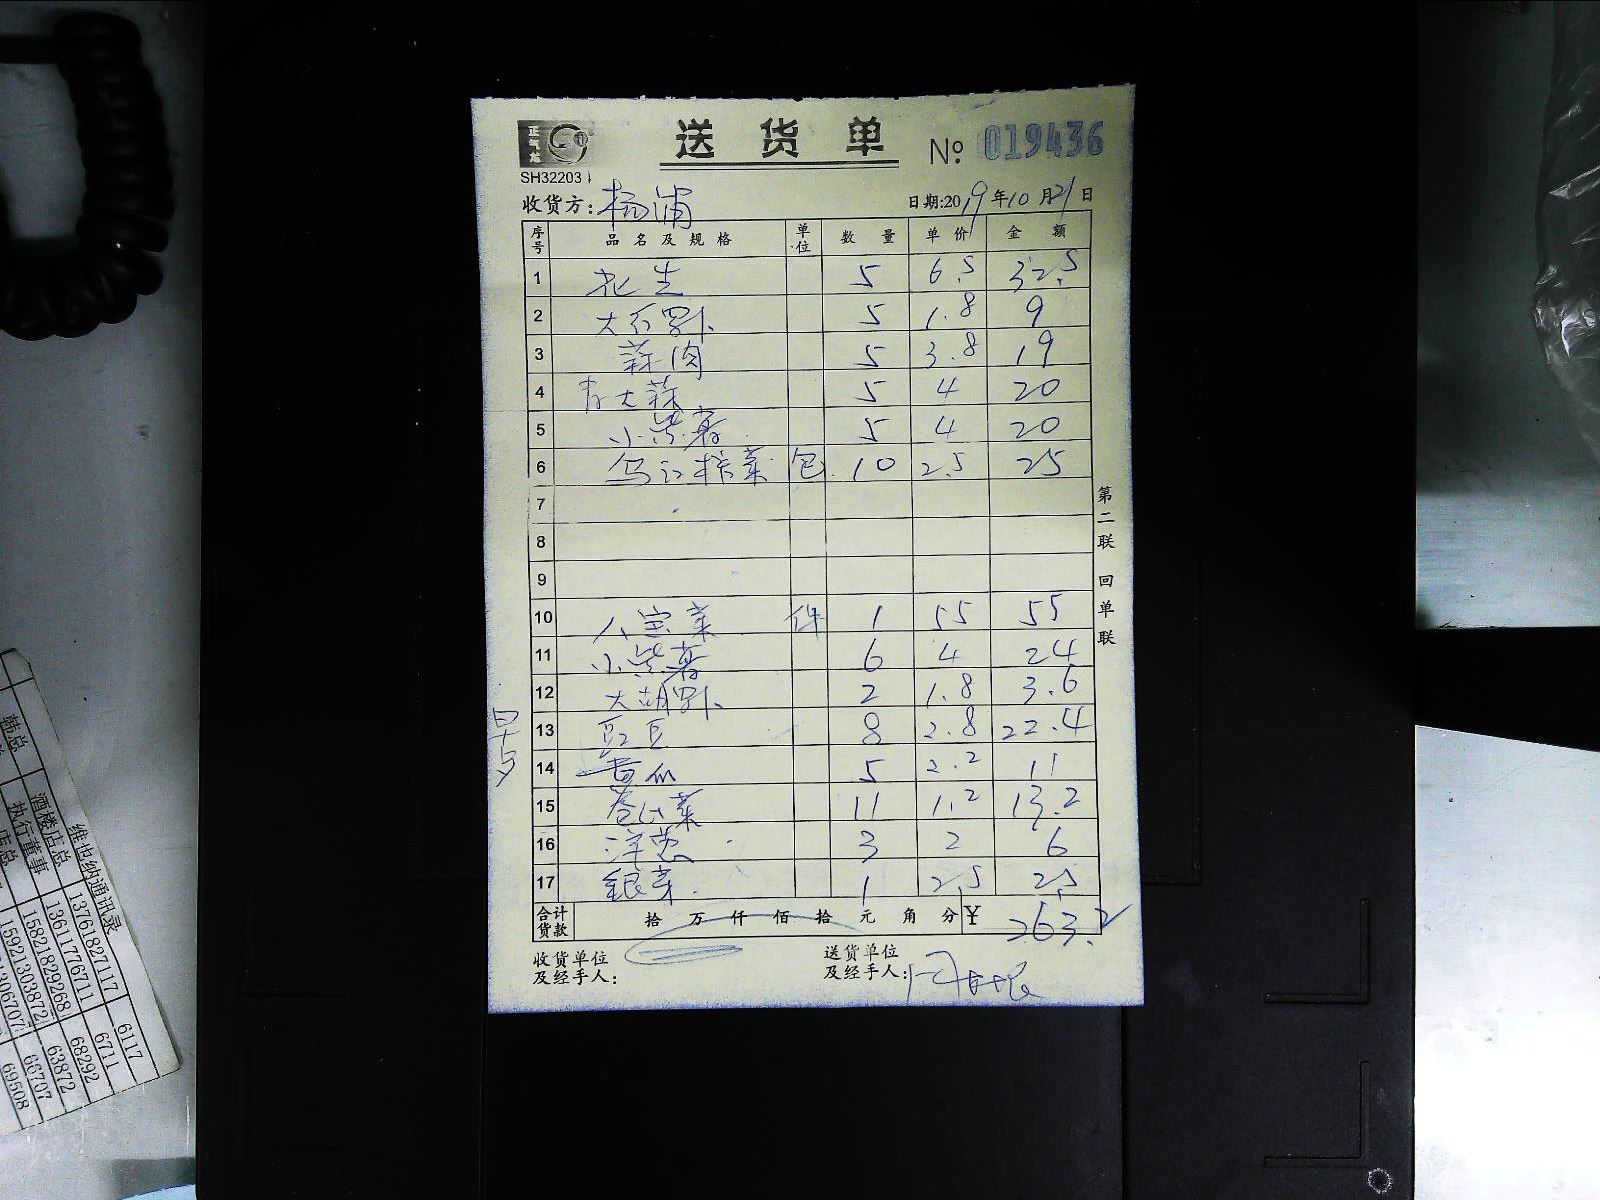 正气龙
SH32203
送货单 № 019436
收货方: 杨浦 日期:2019年10月21日
序号 品名及规格 单位 数量 单价 金额
1 花生 5 6.5 32.5
2 大白罗卜 5 1.8 9
3 蒜肉 5 3.8 19
4 青大蒜 5 4 20
5 小紫薯 5 4 20
6 乌江榨菜 包 10 2.5 25
7
8
9
10 八宝菜 件 1 55 55
11 小紫薯 6 4 24
12 大胡罗卜 2 1.8 3.6
13 豇豆 8 2.8 22.4
14 香瓜 5 2.2 11
15 卷心菜 11 1.2 13.2
16 洋葱 3 2 6
17 银芽 1 2.5 2.5
合计货款 拾万仟佰拾元角分 ¥ 263.2
收货单位及经手人:
送货单位及经手人:
第二联 回单联
维也纳通讯录
韩总 酒楼店总 13761827117 6117
执行董事 13611776711 6711
店总 15821829268 68292
15921303872 63872
66707
69508